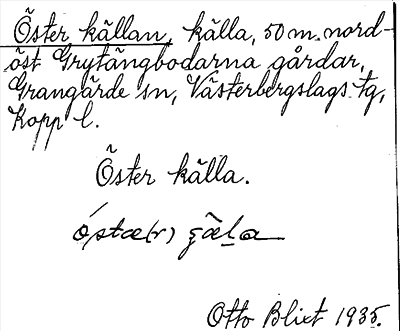 Öster källan, källa, 50 m. nord-
öst Grytängbodarna gårdar,
Grangärde sn, Västerbergslags tg,
Kopp l.
Öster källa.
óstæ(r) çæ̃la
Otto Blixt 1935.